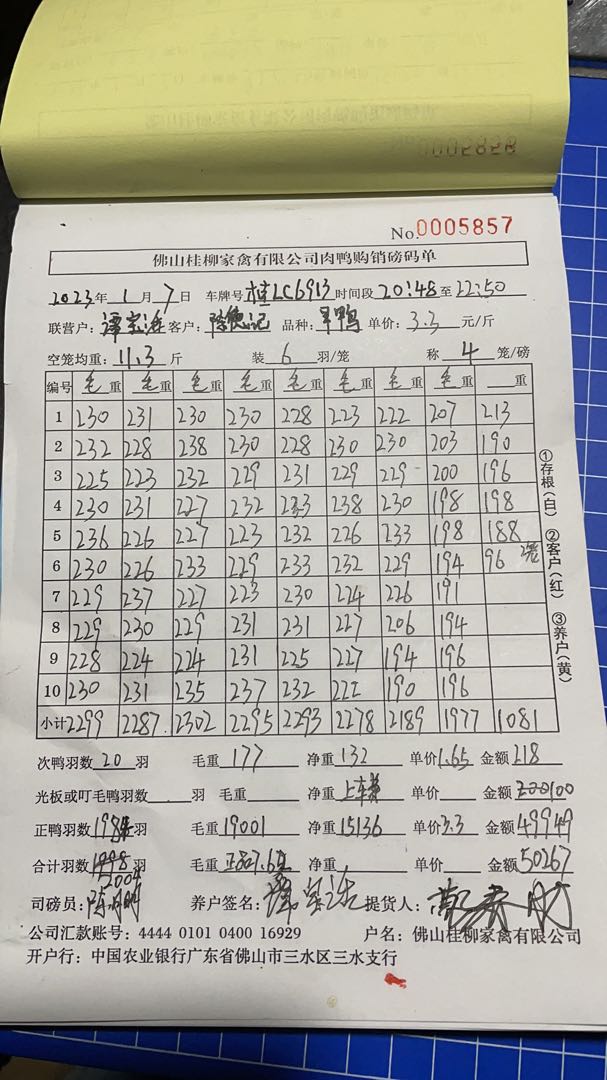 0002828
No.0005857
佛山桂柳家禽有限公司肉鸭购销磅码单
2023年1月7日 车牌号 桂LC6913 时间段 20:48至22:50
联营户: 客户: 品种: 鸭 单价: 3.3 元/斤
空笼均重: 11.3 斤 装 6 羽/笼 称 4 笼/磅
编号 毛重 毛重 毛重 毛重 毛重 毛重 毛重 毛重 重
1 230 231 230 230 228 223 222 207 213
2 232 228 238 230 228 230 230 203 190
3 225 223 232 229 231 229 229 200 196
4 230 231 227 232 233 238 230 198 198
5 236 226 227 223 232 226 233 198 188
6 230 226 233 229 233 232 229 194 96 2笼
7 229 237 227 223 230 224 226 191
8 229 230 229 231 231 227 206 194
9 228 224 224 231 225 227 194 196
10 230 231 235 237 232 222 190 196
小计 2299 2287 2302 2295 2293 2278 2189 1977 1081
次鸭羽数 20 羽 毛重 177 净重 132 单价 1.65 金额 218
光板或叮毛鸭羽数 羽 毛重 净重 上车 单价 金额
正鸭羽数 羽 毛重 19001 净重 15136 单价 3.3 金额 49949
合计羽数 2004 羽 毛重 净重 单价 金额 50267
司磅员: 养户签名: 提货人:
公司汇款账号: 4444 0101 0400 16929 户名: 佛山桂柳家禽有限公司
开户行: 中国农业银行广东省佛山市三水区三水支行
①存根(白) ②客户(红) ③养户(黄)